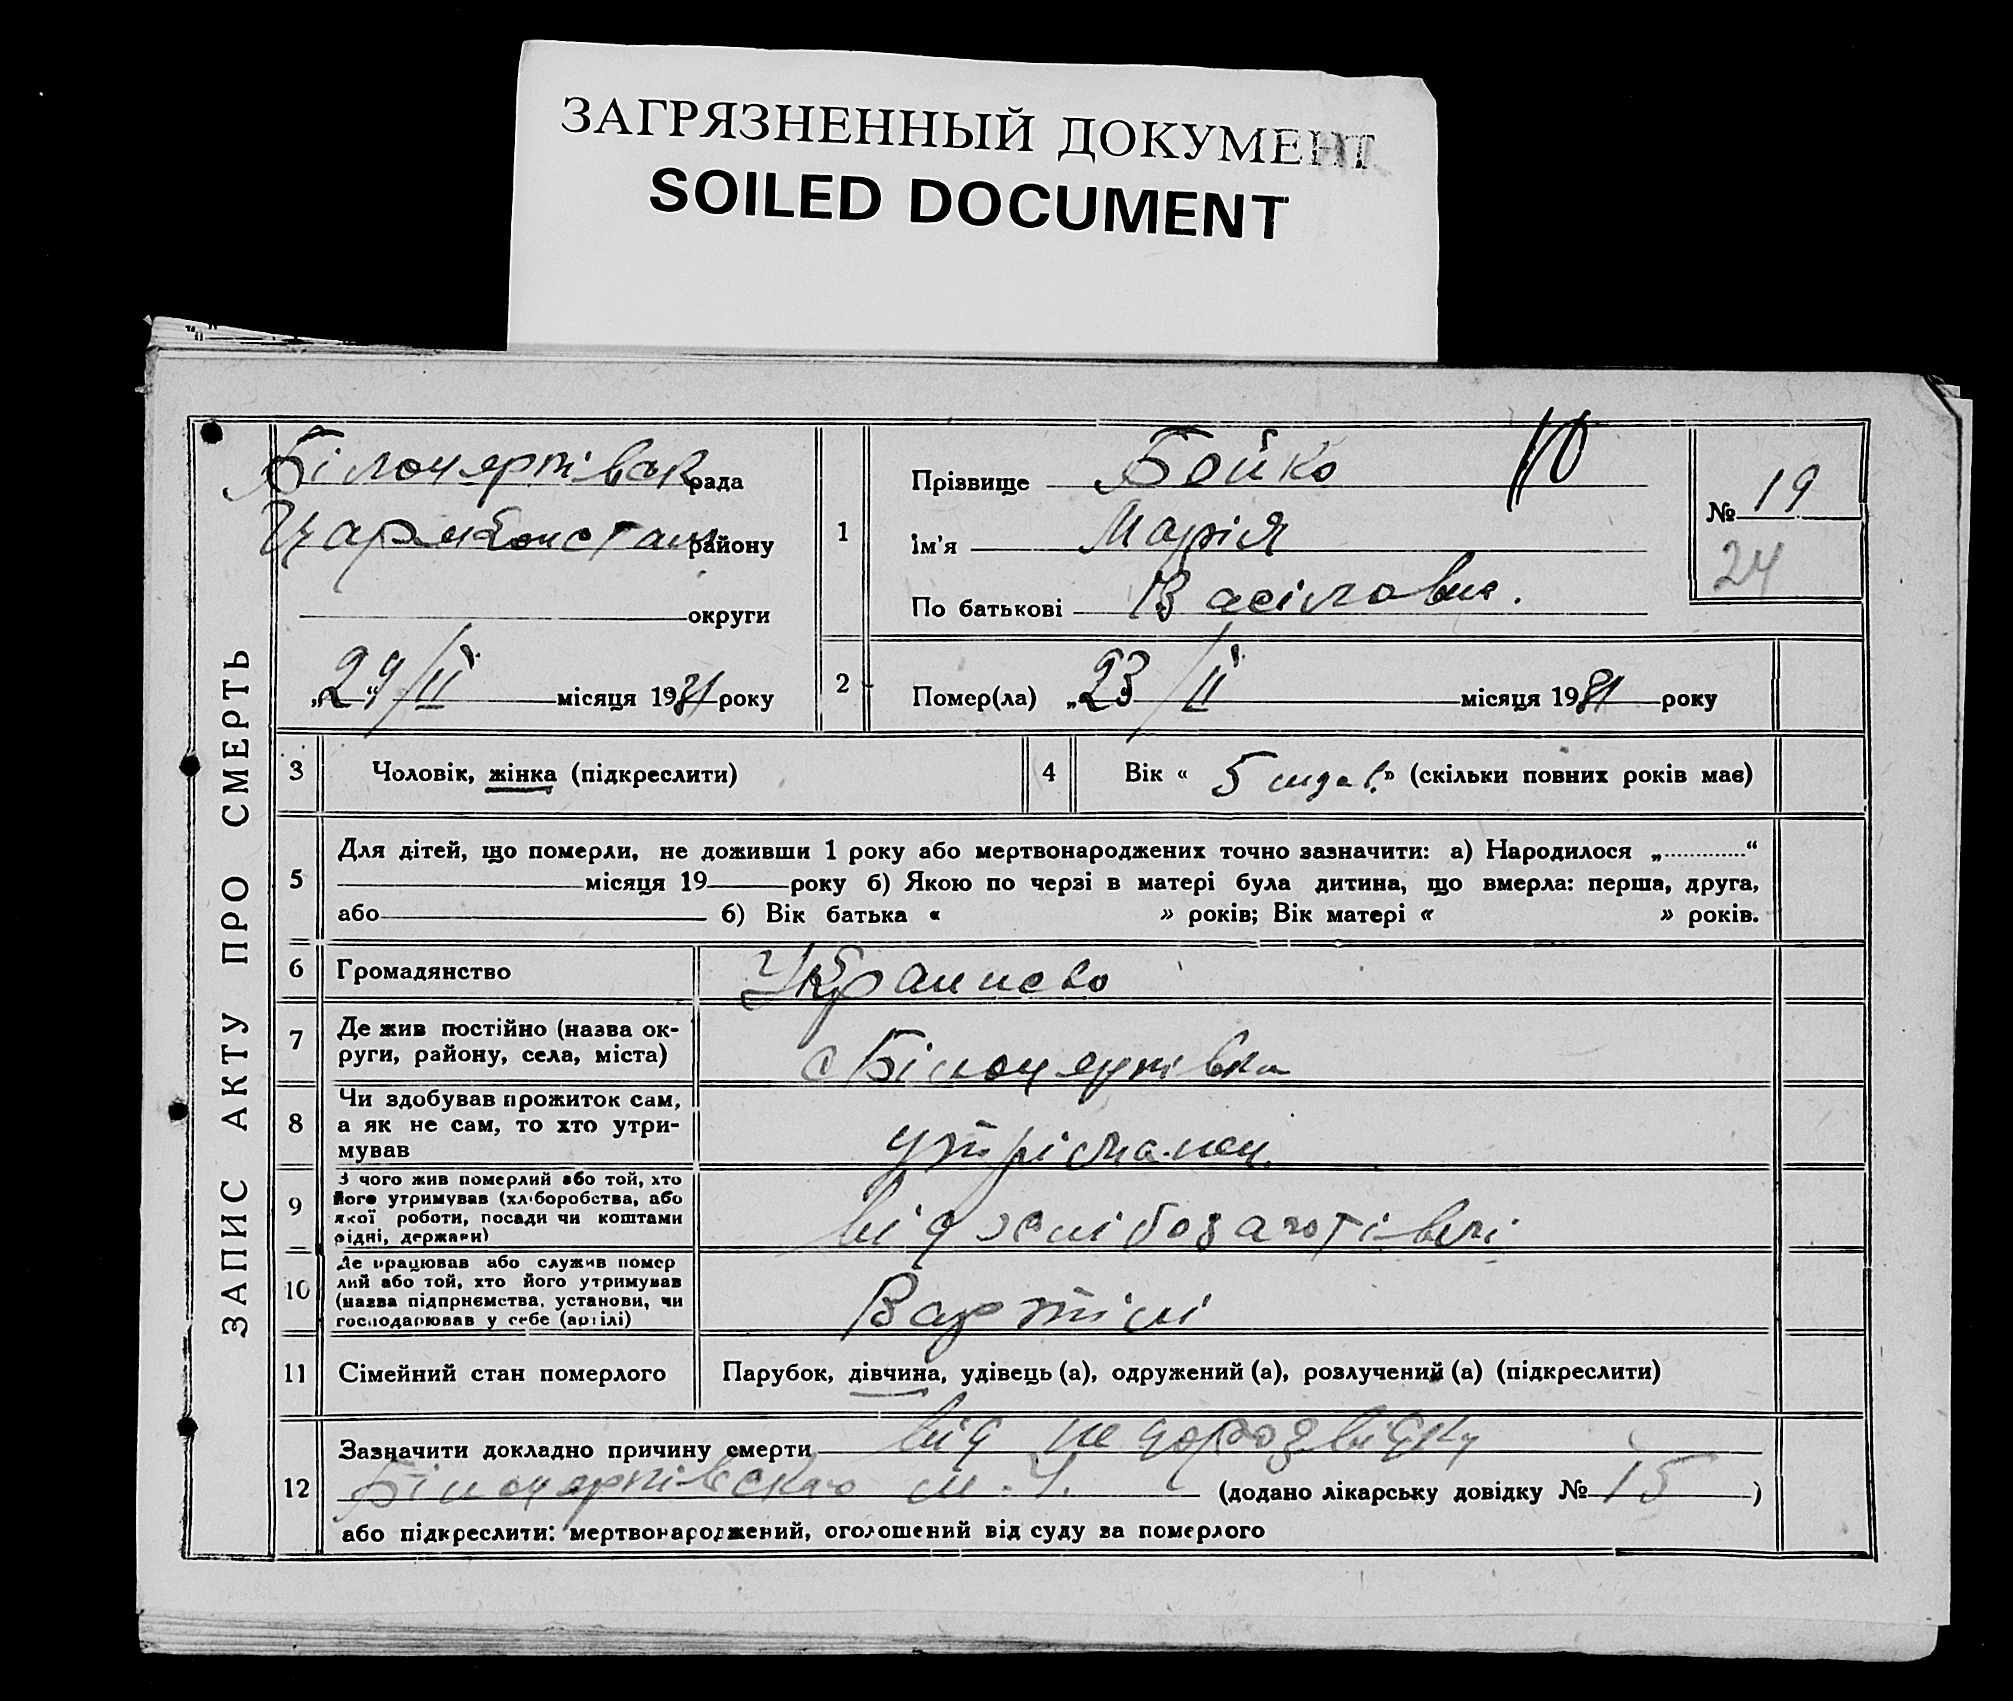 ЗАГРЯЗНЕННЫЙ ДОКУМЕНТ
SOILED DOCUMENT
ЗАПИС АКТУ ПРО СМЕРТЬ
рада
району
округи
„29“ / II місяця 1931 року
1
Прізвище Бойко
Ім'я Марія
По батькові
10
№ 19
24
2
Помер(ла) „23 / II місяця 1931 року
3 Чоловік, жінка (підкреслити)
4 Вік « 5 » (скільки повних років має)
5
Для дітей, що померли, не доживши 1 року або мертвонароджених точно зазначити: а) Народилося „............“
місяця 19 року б) Якою по черзі в матері була дитина, що вмерла: перша, друга,
або б) Вік батька « » років; Вік матері « » років.
6 Громадянство
7
Де жив постійно (назва ок-
руги, району, села, міста)
8
Чи здобував прожиток сам,
а як не сам, то хто утри-
мував
9
З чого жив померлий або той, хто
його утримував (хліборобства, або
якої роботи, посади чи коштами
рідні, держави)
10
Де працював або служив помер
лий або той, хто його утримував
(назва підприємства, установи, чи
господарював у себе (артілі)
11 Сімейний стан померлого Парубок, дівчина, удівець (а), одружений (а), розлучений (а) (підкреслити)
12
Зазначити докладно причину смерти від
(додано лікарську довідку № 15 )
або підкреслити: мертвонароджений, оголошений від суду за померлого